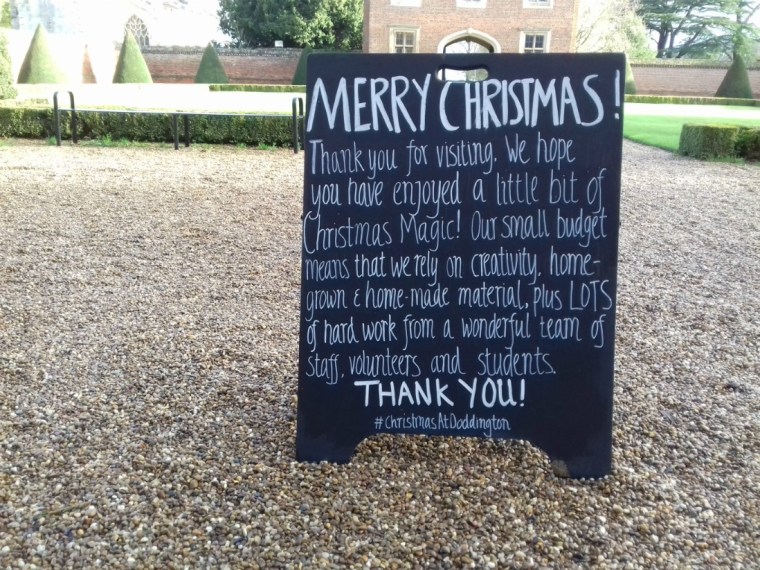 MERRY CHRISTMAS!
Thank you for visiting. We hope
you have enjoyed a little bit of
Christmas Magic! Our small budget
means that we rely on creativity, home-
grown & home-made material, plus LOTS
of hard work from a wonderful team of
staff, volunteers and students.
THANK YOU!
#ChristmasAtDoddington